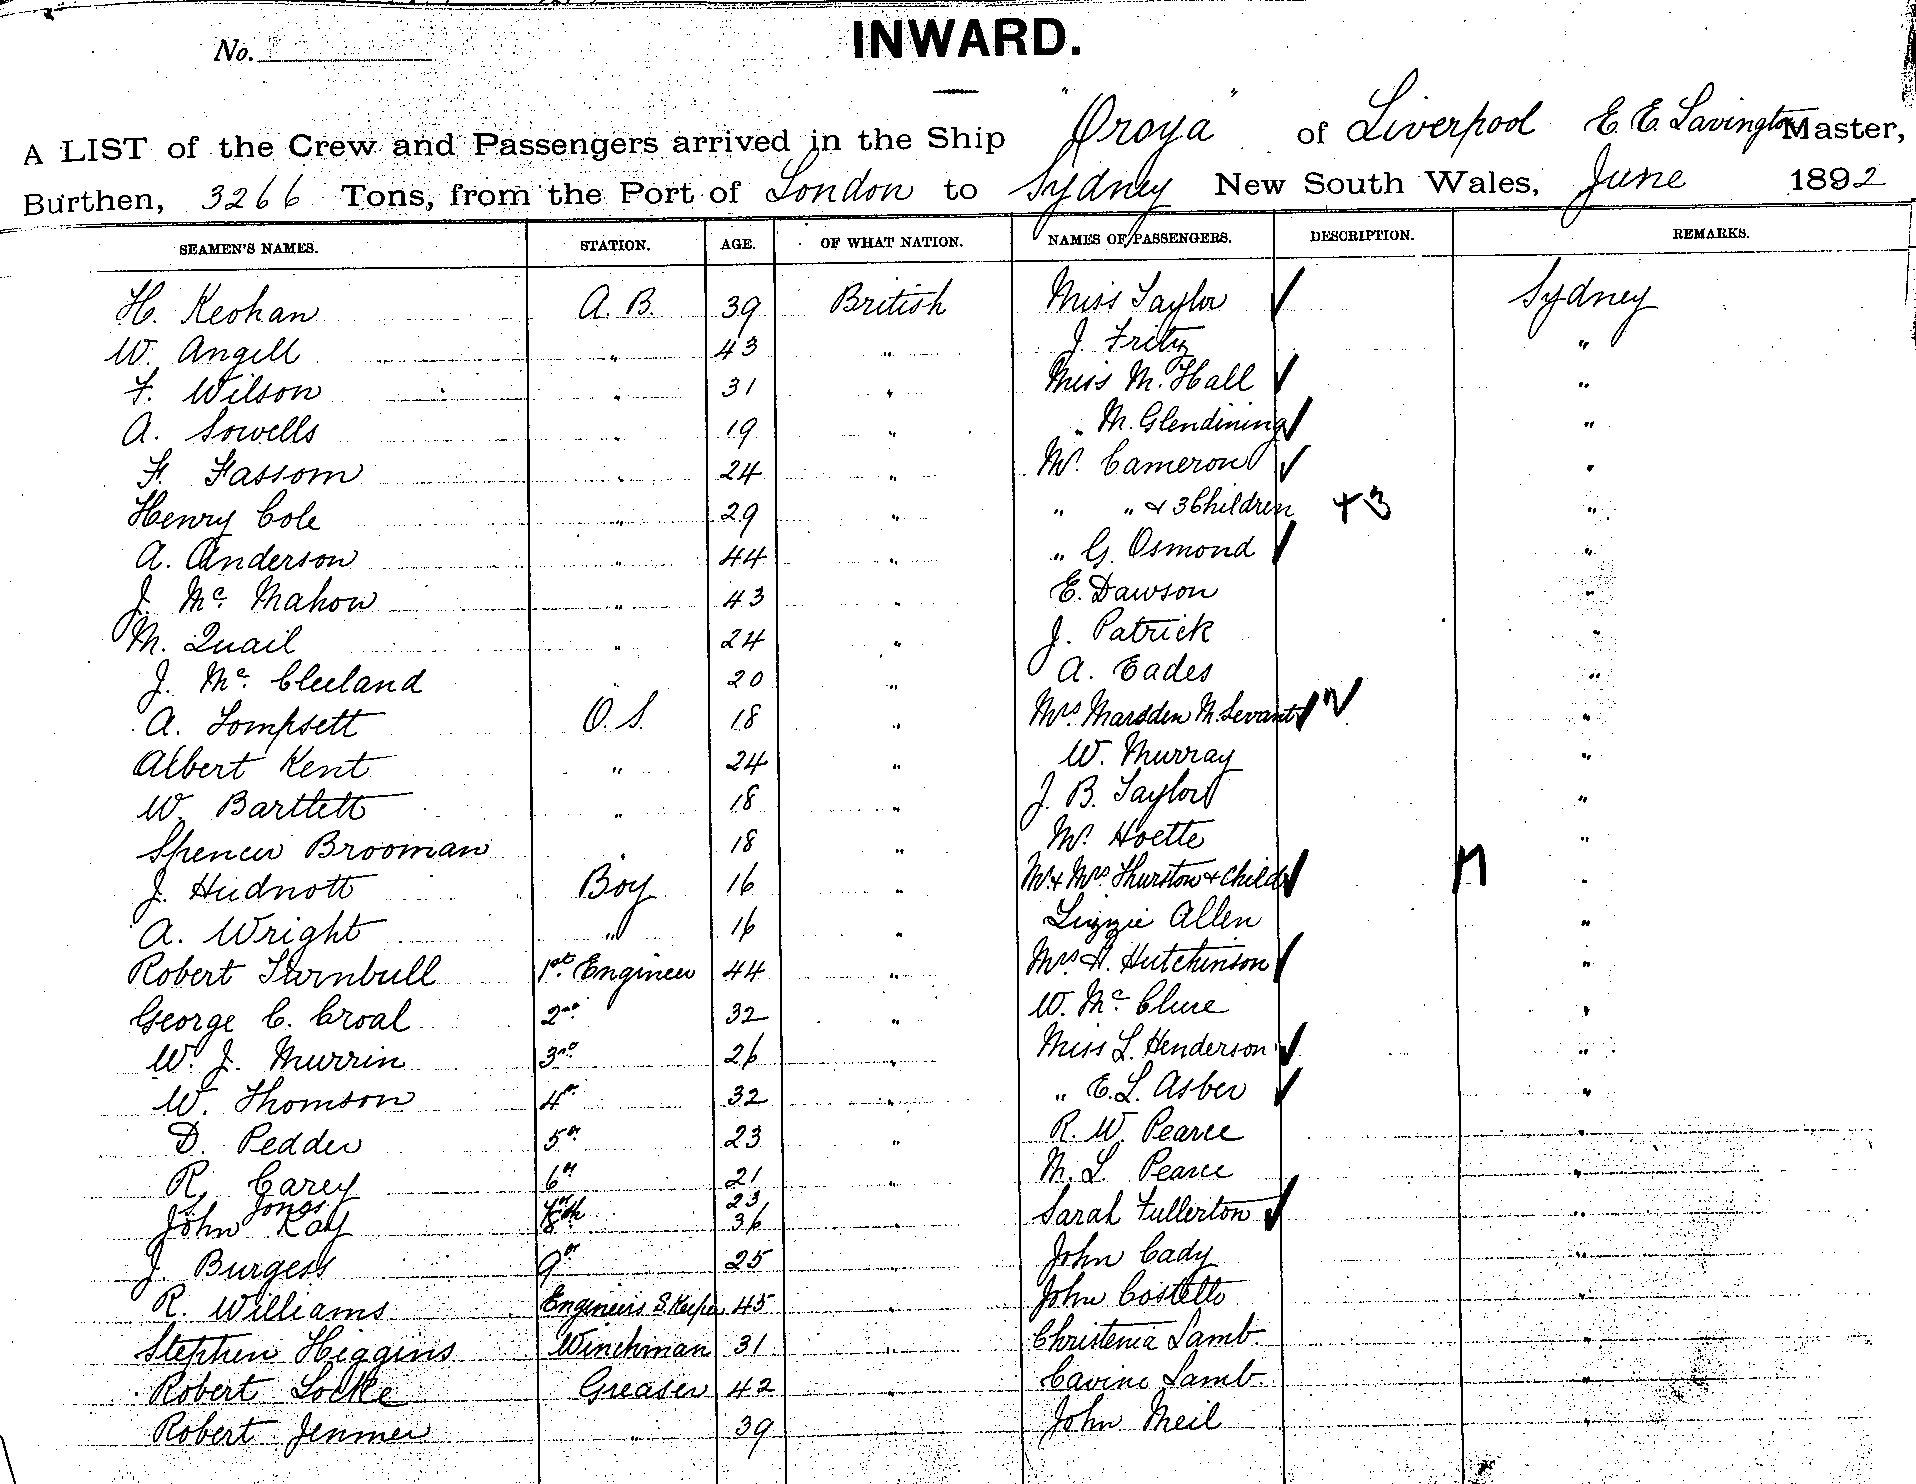 No.
INWARD.
A LIST of the Crew and Passengers arrived in the Ship "Oroya" of Liverpool E. E. Lavington Master,
Burthen, 3266 Tons, from the Port of London to Sydney New South Wales, June 1892
SEAMEN'S NAMES. STATION. AGE. OF WHAT NATION. NAMES OF PASSENGERS. DESCRIPTION. REMARKS.
H. Keohan A. B. 39 British Miss Taylor ✓ Sydney
W. Angell " 43 " J. Fritz "
F. Wilson " 31 " Miss M. Hall ✓ "
A. Sowells " 19 " " M. Glendining ✓ "
F. Fassom " 24 " Mr. Cameron ✓ "
Henry Cole " 29 " " " & 3 Children + 3 "
A. Anderson " 44 " " G. Osmond ✓ "
J. Mc. Mahon " 43 " E. Dawson "
M. Quail " 24 " J. Patrick "
J. Mc. Cleeland 20 " A. Eades "
A. Tompsett O. S. 18 " Mrs. Marsden M. Sevant ✓ "
Albert Kent " 24 " W. Murray "
W. Bartlett " 18 " J. B. Taylor "
Spencer Brooman " 18 " Mr. Hoette "
J. Hudnott Boy 16 " Mr & Mrs. Thurston & Child ✓ "
A. Wright " 16 " Lizzie Allen "
Robert Turnbull 1st. Engineer 44 " Mrs. H. Hutchinson ✓ "
George C. Croal 2nd 32 " W. Mc. Clure "
W. J. Murrin 3rd 26 " Miss L. Henderson ✓ "
W. Thomson 4th 32 " " E. L. Asber ✓ "
D. Pedder 5th 23 " R. W. Pearce "
R. Carey 6th 21 " M. L. Pearce "
Jones 7th 23
John Kay 8th 36 " Sarah Fullerton ✓ "
J. Burgess 9th 25 " John Cady "
R. Williams Engineers S. Keeper 45 " John Costello "
Stephen Higgins Winchman 31 " Christenia Lamb "
Robert Locke Greaser 42 " Cavine Lamb "
Robert Jenmer " 39 " John Meil "